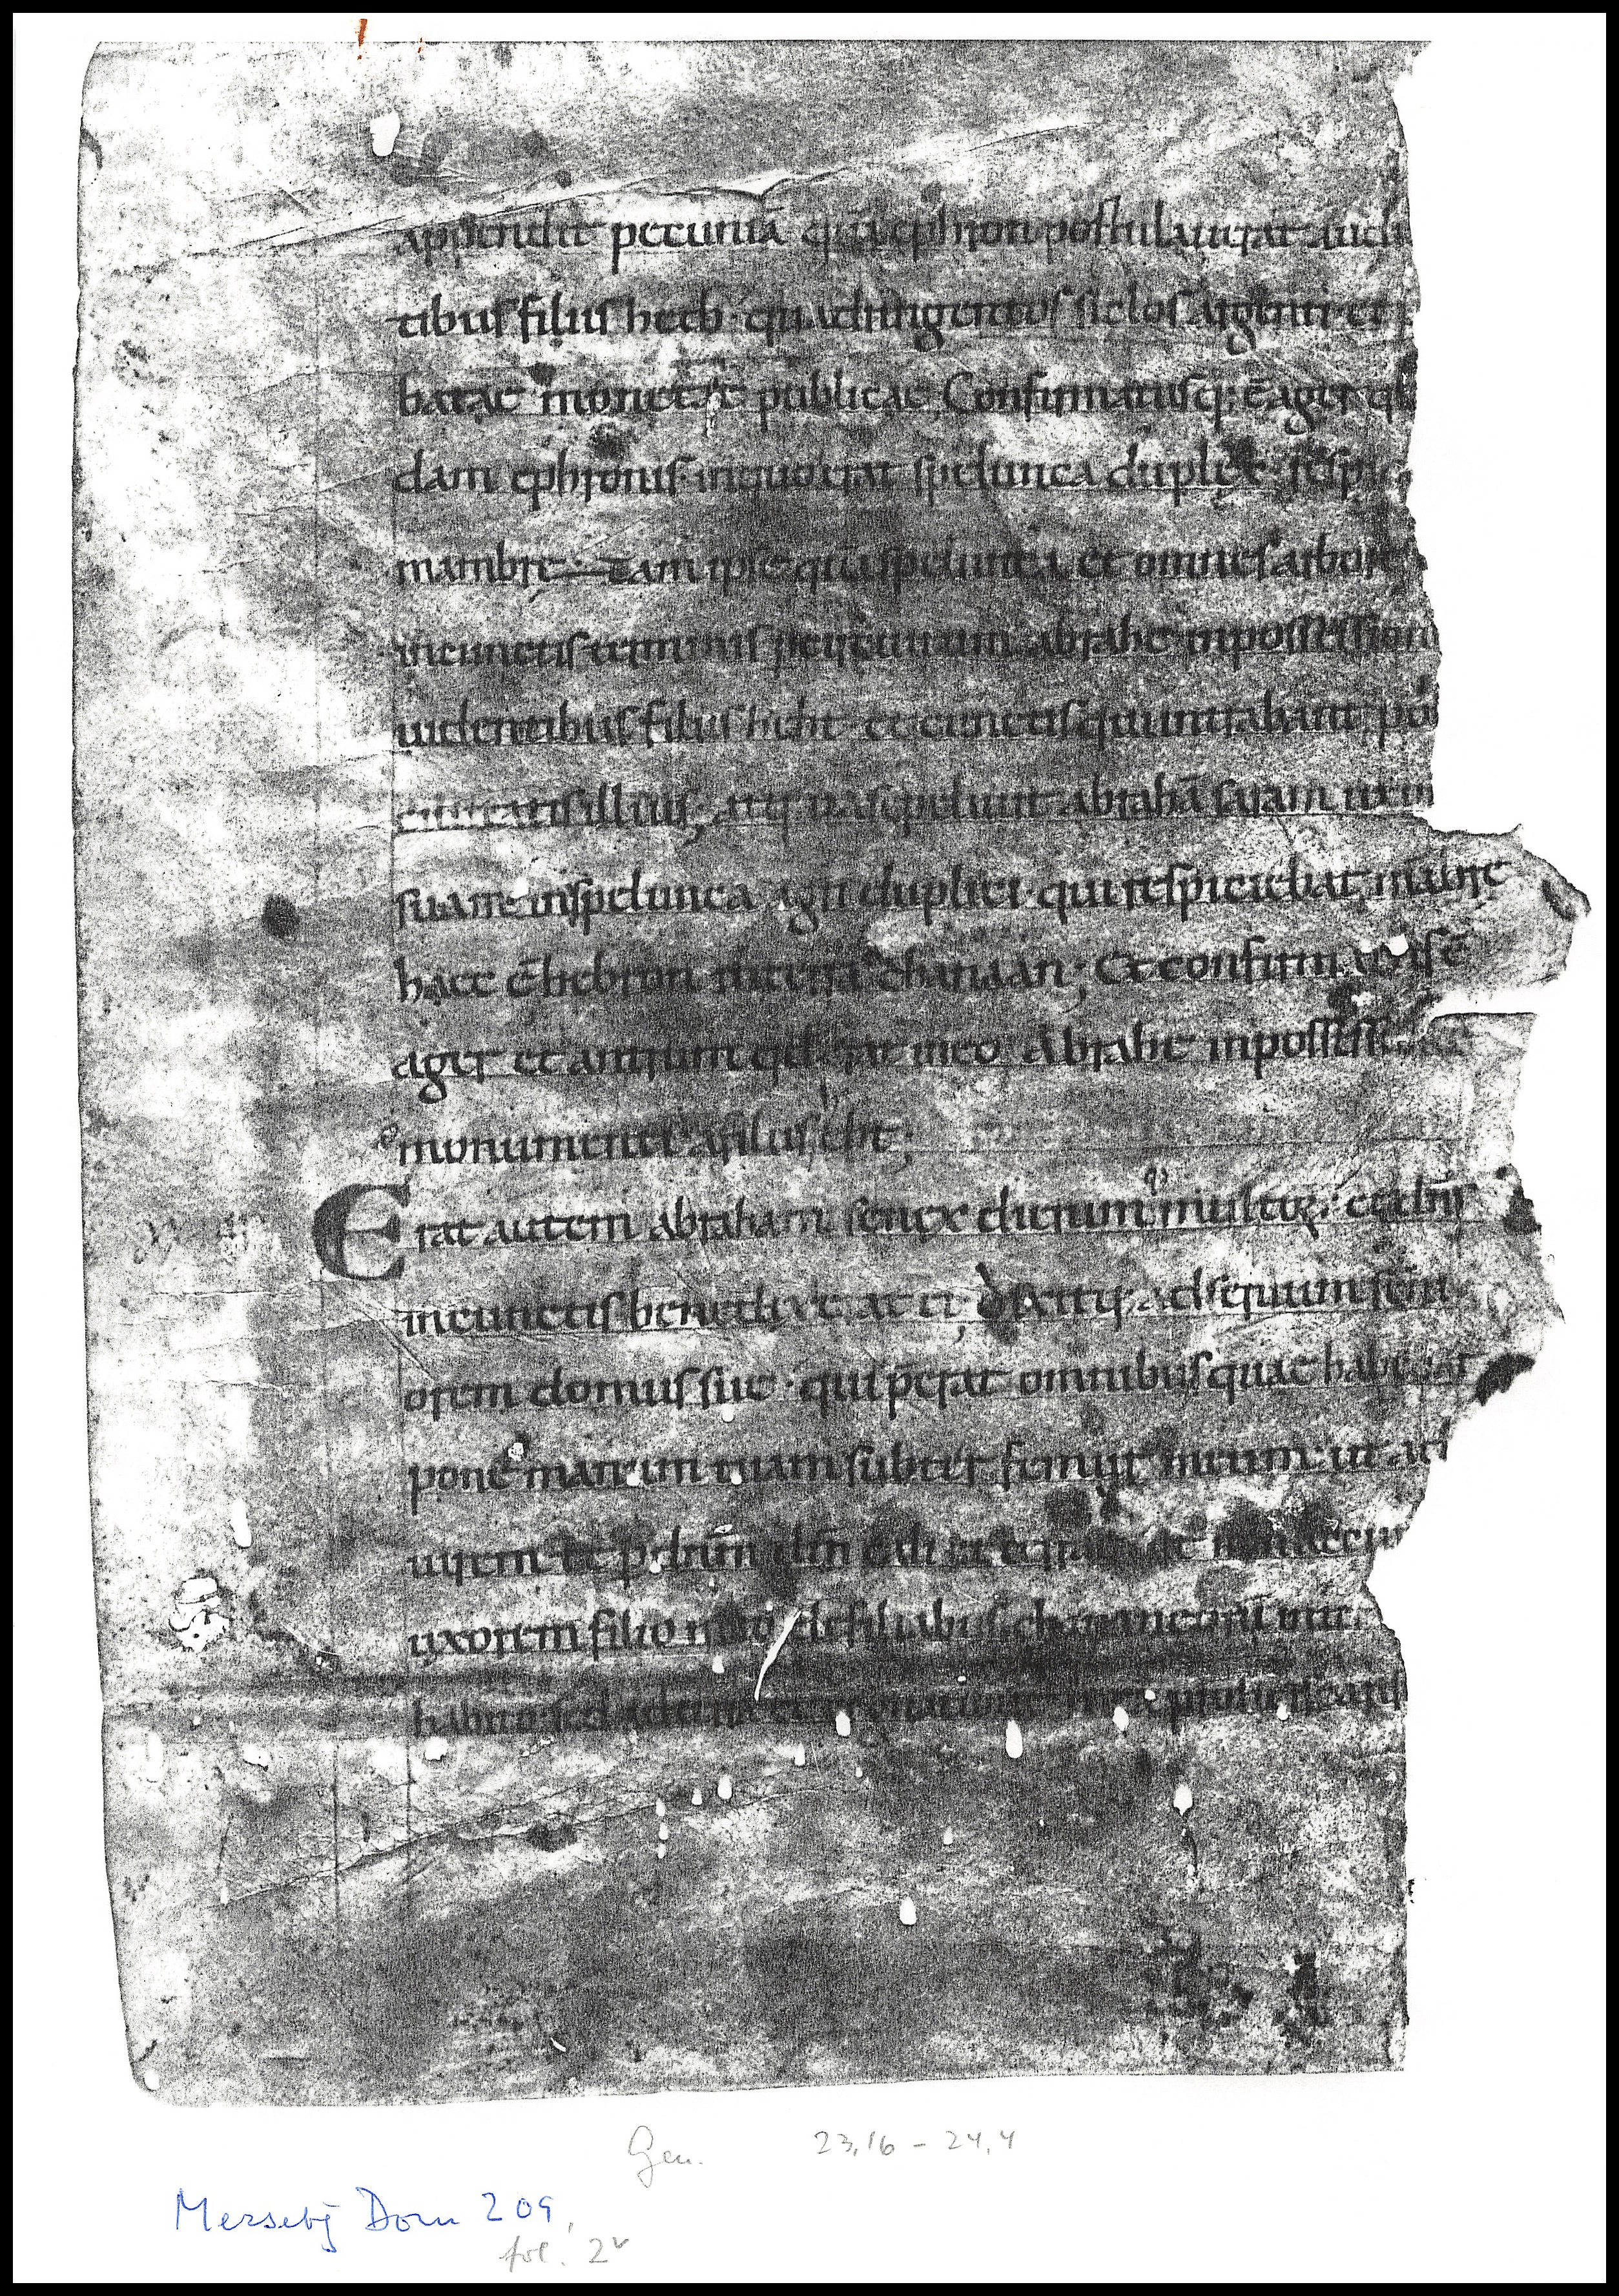 appendit pecuniā quā ephron postulauerat audi
tibus filiis heth· quadringentos siclos argenti· et p
batae monetae publicae, Confirmatusq; ē ager q
dam ephronis· inquo erat spelunca duplex· respi
mambre· Tam ipse quā spelunca et omnes arbores
incunctis terminis per circuitum abrahe inpossessionē
uidentibus filiis heth· et cunctis qui intrabant por
ciuitatis illius; atq; ita sepeliuit abrahā saram uxorē
suam inspelunca agri duplici· qui respiciebat mābre
haec ē hebron interra chanaan; Et confirmatus ē
ager et antrum qđ erat ineo Abrahe inpossess
monumenti afiliis heth;
Erat autem abraham senex dierumq; multoꝝ· et dn̄s
incunctis benedixerat ei; dixitq; ad seruum seni
orem domus sue· qui p̄erat omnibus quae habebat
pone manum tuam subter femur meum· ut adi
urem te p dn̄m dm̄ celi et terrae ut non accip
uxorem filio meo de filiabus chananeorū inter
habito· sed ad terram et cognationem meā proficiscaris
Gen. 23,16 – 24,4
Mersebg Dom 209,
fol. 2v